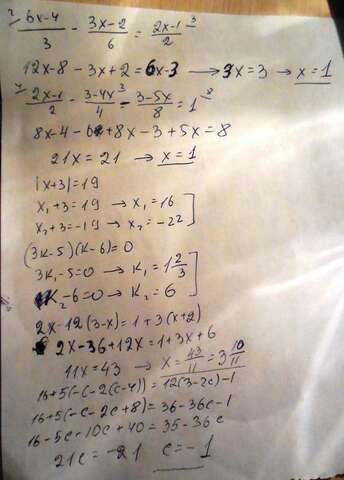 ²⁾ 6x-4/3 - 3x-2/6 = 2x-1/2 ³⁾
12x-8-3x+2=6x-3 → 3x=3 → x=1
⁴⁾ 2x-1/2 - 3-4x/4 - 3-5x/8 = 1 ⁸⁾
8x-4-6+8x-3+5x=8
21x=21 → x=1
|x+3|=19
x₁+3=19 → x₁=16
x₂+3=-19 → x₂=-22
(3k-5)(k-6)=0
3k₁-5=0 → k₁=1 2/3
k₂-6=0 → k₂=6
2x-12(3-x)=1+3(x+2)
2x-36+12x=1+3x+6
11x=43 → x=43/11=3 10/11
16+5(-c-2(c-4))=12(3-2c)-1
16+5(-c-2c+8)=36-36c-1
16-5c-10c+40=35-36c
21c=-21 c=-1